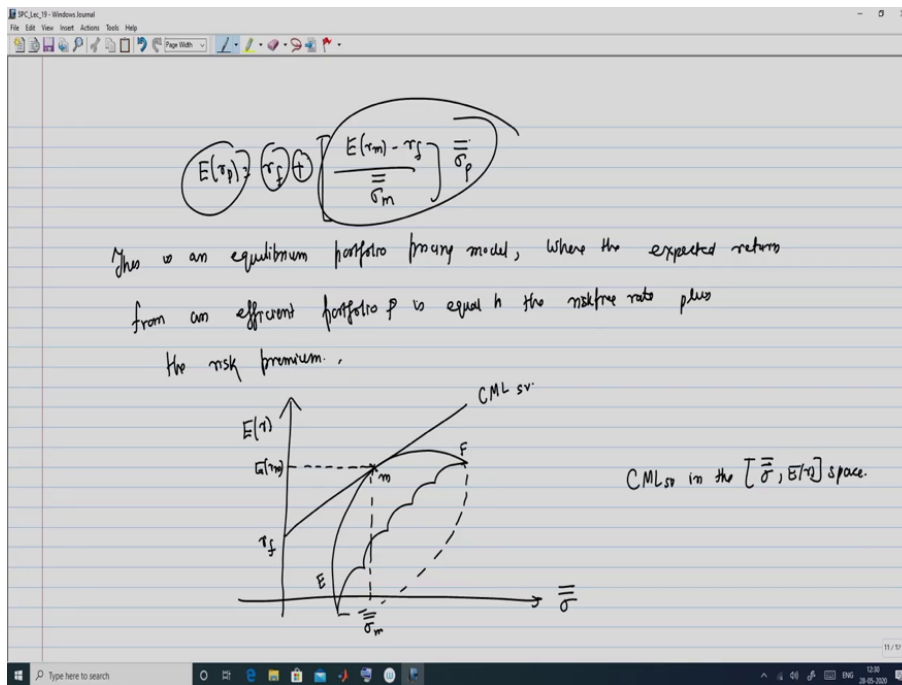 SPC_Lec_19 - Windows Journal
File Edit View Insert Actions Tools Help
Page Width
E(r_p) = r_f + [ (E(r_m) - r_f) / σ̿_m ] σ̿_p
This is an equilibrium portfolio pricing model, where the expected return
from an efficient portfolio p is equal to the riskfree rate plus
the risk premium.
CML sv.
E(r)
F
E(r_m)
m
CML_sv in the [σ̿, E(r)] space.
r_f
E
σ̿
σ̿_m
11 / 12
Type here to search
ENG
12:30
28-05-2020